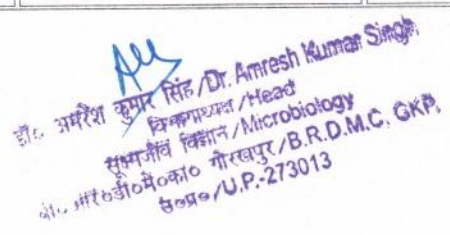 डॉ० अमरेश कुमार सिंह/Dr. Amresh Kumar Singh
विभागाध्यक्ष/Head
सूक्ष्मजीव विज्ञान/Microbiology
बी०आर०डी०मे०का० गोरखपुर/B.R.D.M.C. GKP.
उ०प्र०/U.P.-273013